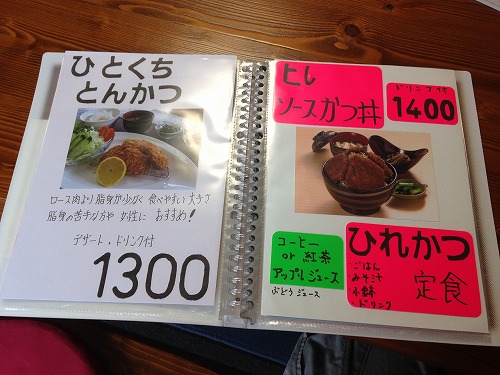 ひとくち
とんかつ
ロース肉より脂身が少なく 食べやすい大きさ
脂身の苦手な方や 女性に おすすめ!
デザート・ドリンク付
1300
ヒレ
ソースかつ丼
ドリンク付
1400
コーヒー
or 紅茶
アップルジュース
ぶどうジュース
ひれかつ
定食
・ごはん
みそ汁
・小鉢
・ドリンク